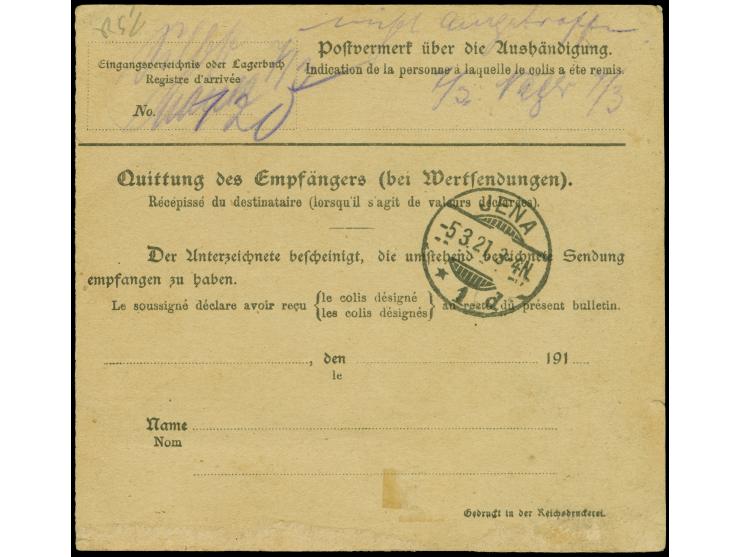 nicht angetroffen
Eingangsverzeichnis oder Lagerbuch
Registre d'arrivée
No. 120
Postvermerk über die Aushändigung.
Indication de la personne à laquelle le colis a été remis
Quittung des Empfängers (bei Wertsendungen).
Récépissé du destinataire (lorsqu'il s'agit de valeurs déclarées).
JENA
-5.3.21.3-4N.
* 1 d.
Der Unterzeichnete bescheinigt, die umstehend bezeichnete Sendung
empfangen zu haben.
Le soussigné déclare avoir reçu {le colis désigné / les colis désignés} au recto du présent bulletin.
, den 191
le
Name
Nom
Gedruckt in der Reichsdruckerei.